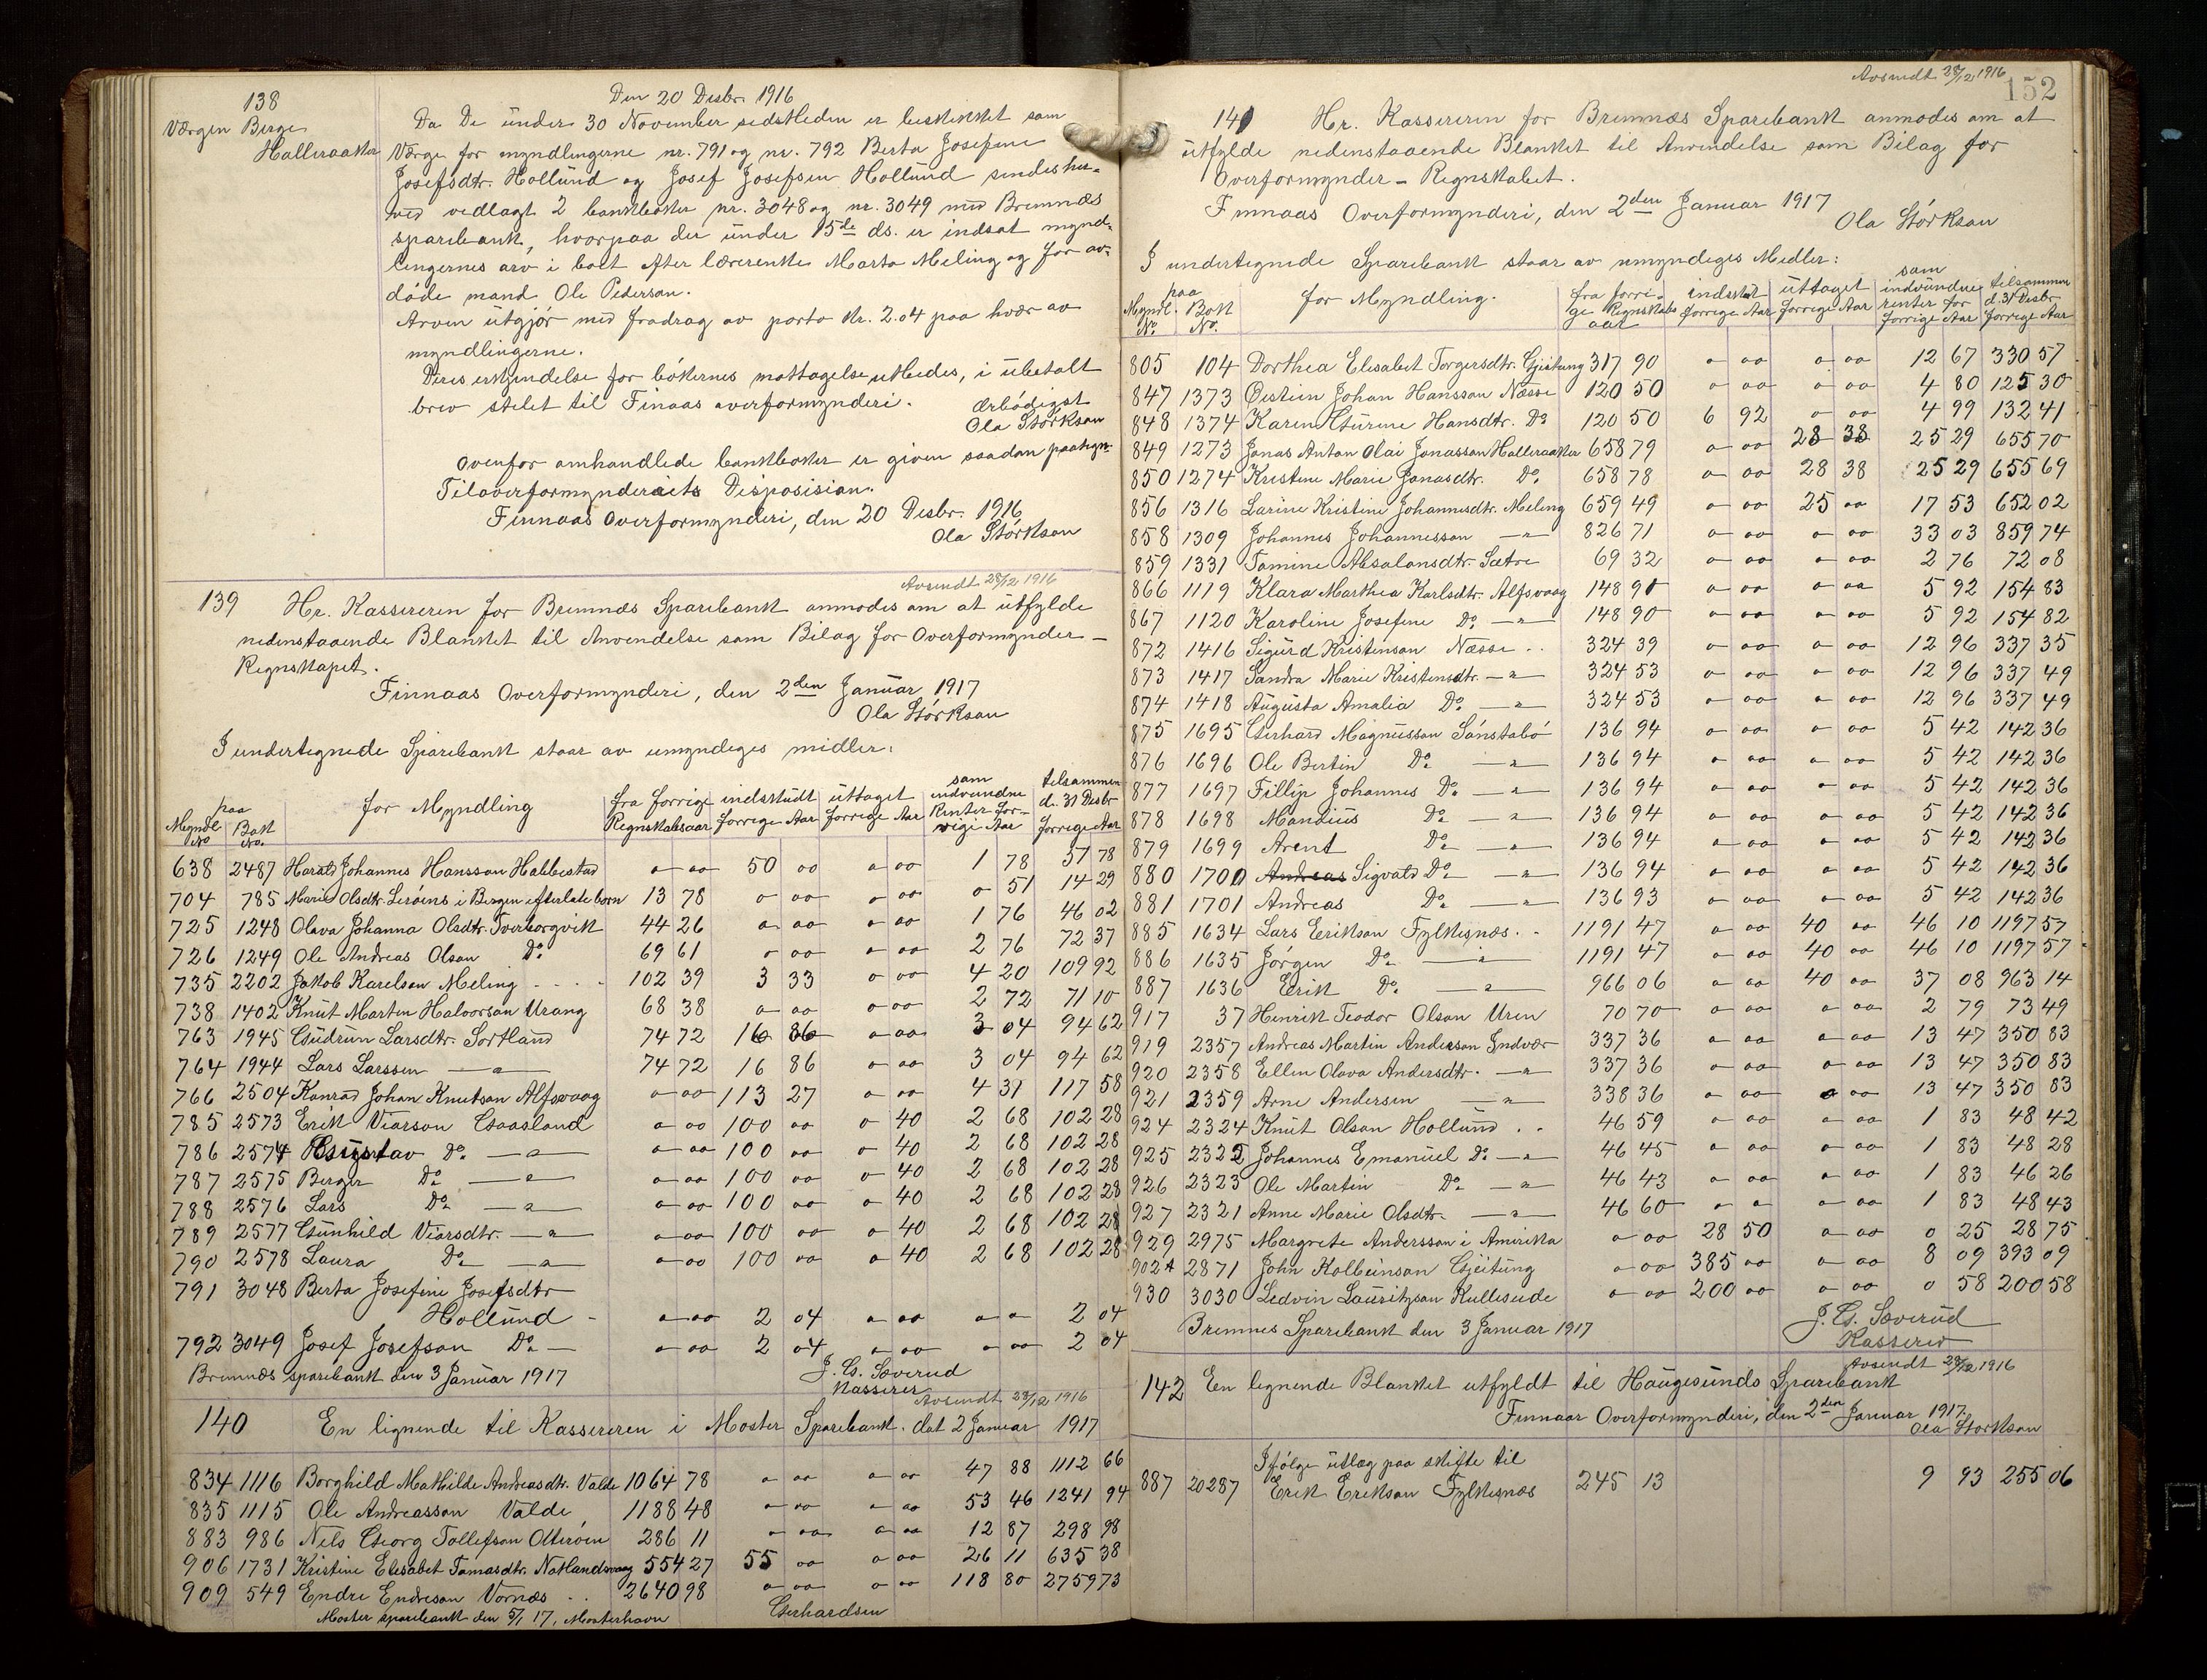 138
Værgen Berge
Halleraaker
Den 20 Desbr. 1916
Da De under 30 November sidstleden er beskikket som
Værge for myndlingerne nr. 791 og nr. 792 Berta Josefine
Josefsdtr. Hollund og Josef Josefsen Hollund sendes her-
ved vedlagt 2 bankbøker nr. 3048 og nr. 3049 med Bremnæs
sparebank, hvorpaa der under 15de ds. er indsat mynd-
lingernes arv i bolt efter lærerenke Marta Meling og før av-
døde mand Ole Pederson.
Arven utgjør med fradrag av porto Kr. 2.04 paa hvær av
myndlingerne.
Deres erkjendelse for bøkernes mottagelse utbedes, i ubetalt
brev stilet til Finaas overformynderi. Ærbødigst
Ola Størkson
Ovenfor omhandlede bankbøker er given saadan paategn.
Til overformynderiets Disposision.
Finnaas Overformynderi, den 20 Desbr. 1916
Ola Størkson
Avsendt 28/12 1916
139 Hr. Kassereren for Bremnæs Sparebank anmodes om at utfylde
nedenstaaende Blanket til Anvendelse som Bilag for Overformynder-
Regnskapet.
Finnaas Overformynderi, den 2den Januar 1917
Ola Størkson
I undertegnede Sparebank staar av umyndiges midler:
Myndl. No paa Bok No. for Myndling fra forrige Regnskabsaar indskudt forrige Aar uttaget forrige Aar som indvundne Renter forrige Aar tilsammen d. 31 Desbr forrige Aar
638 2487 Harald Johannes Hansson Habbestad o oo 50 oo o oo 1 78 51 78
704 785 Marie Olsdtr. Lerøens i Bergen efterlate born 13 78 o oo o oo o 51 14 29
725 1248 Olava Johanna Olsdtr. Tverborgvik 44 26 o oo o oo 1 76 46 02
726 1249 Ole Andreas Olson Do 69 61 o oo o oo 2 76 72 37
735 2202 Jakob Karelson Meling 102 39 3 33 o oo 4 20 109 92
738 1402 Knut Martin Halvorson Urang 68 38 o oo o oo 2 72 71 10
763 1945 Gudrun Larsdtr. Sortland 74 72 16 86 o oo 3 04 94 62
764 1944 Lars Larssen — " — 74 72 16 86 o oo 3 04 94 62
766 2504 Konrad Johan Knutson Alfsvaag o oo 113 27 o oo 4 31 117 58
785 2573 Erik Viarson Gaasland o oo 100 oo o 40 2 68 102 28
786 2574 Gustav Do — " — o oo 100 oo o 40 2 68 102 28
787 2575 Berger Do — " — o oo 100 oo o 40 2 68 102 28
788 2576 Lars Do — " — o oo 100 oo o 40 2 68 102 28
789 2577 Gunhild Viarsdtr. — " — o oo 100 oo o 40 2 68 102 28
790 2578 Laura Do — " — o oo 100 oo o 40 2 68 102 28
791 3048 Berta Josefine Josefsdtr
Hollund - o oo 2 04 o oo o o 2 04
792 3049 Josef Josefson Do — o oo 2 04 o oo o oo 2 04
Bremnæs sparebank den 3 Januar 1917 J. G. Sæverud
Kasserer
Avsendt 23/12 1916
140 En lignende til Kassereren i Moster Sparebank. dat 2 Januar 1917
834 1116 Borghild Mathilde Andreasdtr. Valde 1064 78 o oo o oo 47 88 1112 66
835 1115 Ole Andreasson Valde 1188 48 o oo o oo 53 46 1241 94
883 986 Nils Georg Tollefson Otterøen 286 11 o oo o oo 12 87 298 98
906 1731 Kristine Elesabet Tomasdtr. Notlandsvaag 554 27 55 oo o oo 26 11 635 38
909 549 Endre Endreson Vornæs 2640 98 o oo o oo 118 80 2759 73
Moster sparebank den 5/1 17, Mosterhavn Gerhardsen
Avsendt 28/12 1916
152
141 Hr. Kassereren for Bremnæs Sparebank anmodes om at
utfylde nedenstaaende Blanket til Anvendelse som Bilag for
Overformynder-Regnskabet.
Finnaas Overformynderi, den 2den Januar 1917
Ola Størkson
I undertegnede Sparebank staar av umyndiges Midler:
Myndl. No. paa Bok No. for Myndling. fra forrige Regnskabs aar indskut forrige Aar uttaget forrige Aar som indvundne renter for forrige Aar tilsammen d. 31 Desbr forrige Aar
805 104 Dorthea Elisabet Torgersdtr. Gjeitung 317 90 o oo o oo 12 67 330 57
847 1373 Øistein Johan Hansson Næsse 120 50 o oo o oo 4 80 125 30
848 1374 Karen Gurine Hansdtr. Do 120 50 6 92 o oo 4 99 132 41
849 1273 Jonas Anton Olai Jonasson Halleraaker 658 79 o oo 28 38 25 29 655 70
850 1274 Kristine Marie Jonasdtr. Do 658 78 o oo 28 38 25 29 655 69
856 1316 Larine Kristine Johannesdtr. Meling 659 49 o oo 25 oo 17 53 652 02
858 1309 Johannes Johannesson — " — 826 71 o oo o oo 33 03 859 74
859 1331 Tomine Absalonsdtr. Sætre 69 32 o oo o oo 2 76 72 08
866 1119 Klara Marthea Karlsdtr. Alfsvaag 148 91 o oo o oo 5 92 154 83
867 1120 Karoline Josefine Do — " — 148 90 o oo o oo 5 92 154 82
872 1416 Sigurd Kristenson Næsse .. 324 39 o oo o oo 12 96 337 35
873 1417 Sandra Marie Kristensdtr. — " — 324 53 o oo o oo 12 96 337 49
874 1418 Augusta Amalia Do — " — 324 53 o oo o oo 12 96 337 49
875 1695 Gerhard Magnusson Sønstabø 136 94 o oo o oo 5 42 142 36
876 1696 Ole Bertin Do — " — 136 94 o oo o oo 5 42 142 36
877 1697 Fillip Johannes Do — " — 136 94 o oo o oo 5 42 142 36
878 1698 Mandius Do — " — 136 94 o oo o oo 5 42 142 36
879 1699 Arent Do — " — 136 94 o oo o oo 5 42 142 36
880 1700 Andreas Sigvald Do — " — 136 94 o oo o oo 5 42 142 36
881 1701 Andreas Do — " — 136 93 o oo o oo 5 42 142 36
885 1634 Lars Erikson Fylkesnæs . - 1191 47 o oo 40 oo 46 10 1197 57
886 1635 Jørgen Do — " — 1191 47 o oo 40 oo 46 10 1197 57
887 1636 Erik Do — " — 966 06 o oo 40 oo 37 08 963 14
917 37 Henrik Teodor Olson Uren 70 70 o oo o oo 2 79 73 49
919 2357 Andreas Martin Anderson Indvær 337 36 o oo o oo 13 47 350 83
920 2358 Ellen Olava Andersdtr. — " — 337 36 o oo o oo 13 47 350 83
921 2359 Arne Andersen — " — 338 36 o oo o oo 13 47 350 83
924 2324 Knut Olson Hollund . - 46 59 o oo o oo 1 83 48 42
925 2322 Johannes Emanuel Do — " — 46 45 o oo o oo 1 83 48 28
926 2323 Ole Martin Do — " — 46 43 o oo o oo 1 83 46 26
927 2321 Anne Marie Olsdtr. — " — 46 60 o o o oo 1 83 48 43
929 2975 Margrete Andersson i Amirika o oo 28 50 o oo o 25 28 75
902A 2871 John Kolbeinson Gjeitung o oo 385 oo o oo 8 09 393 09
930 3030 Ledvin Lauritzson Kullesude o oo 200 oo o oo o 58 200 58
Bremnes Sparebank den 3 Januar 1917 J. G. Sæverud
Kasserer
Avsendt 29/12 1916
142 En lignende Blanket utfyldt til Haugesunds Sparebank
Finnaas Overformynderi, den 2den Januar 1917.
Ola Størkson
Ifølge utlæg paa skifte til
887 20287 Erik Erikson Fylkesnæs 245 13 9 93 255 06